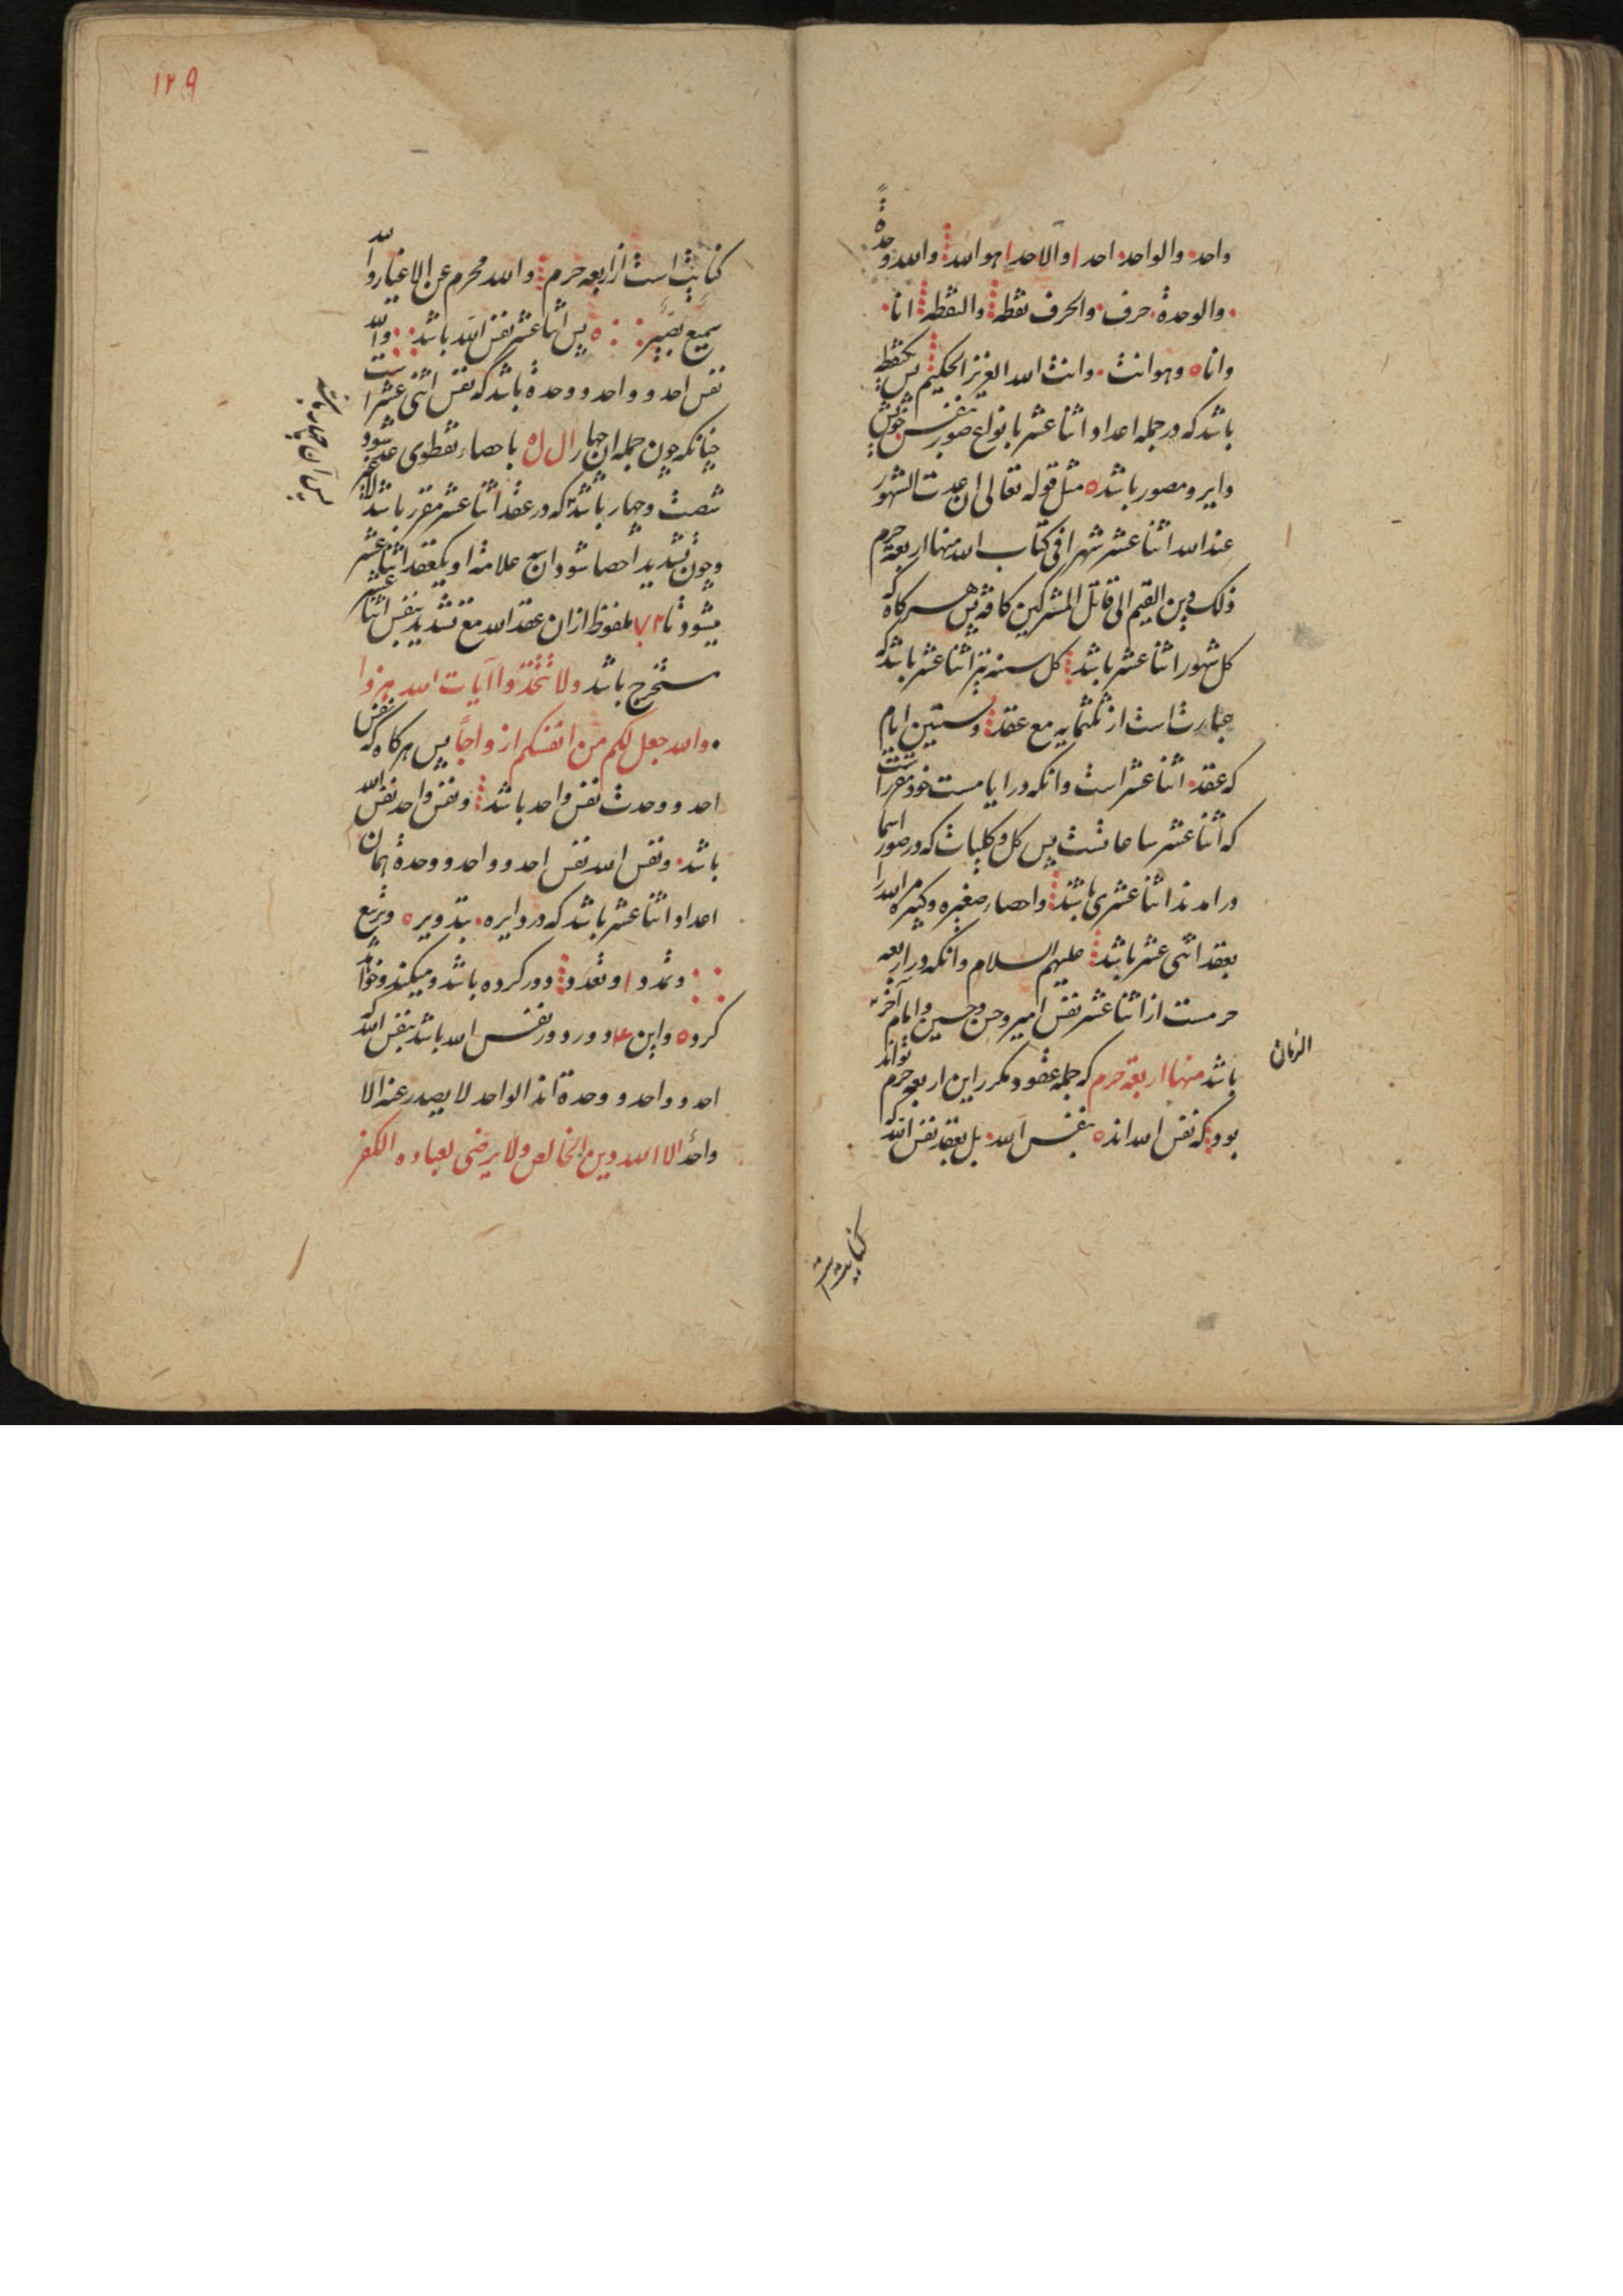 واحد والواحد احد ا والاحد ا هو الله والله وحدة
والوحدة حرف والحرف نقطه والنقطه انا
وانا ه وهو انت وانت الله العزیز الحکیم پس یکنقطه
باشد که در جمله اعداد اثنا عشر بانواع صور بنفس خویش
دایر و مصور باشد ه مثل قوله تعالی ان عدت الشهور
عند الله اثنا عشر شهرا فی کتاب الله منها اربعة حرم
ذلک دین القیم الی قاتل المشرکین کافه پس هرگاه که
کل شهور اثنا عشر باشد کل سنه نیز اثنا عشر باشد که
عبارت است از ثلثمایه مع عقد و ستین ایام
که عقد اثنا عشر است وانکه در ایامست خود مقررا ست
که اثنا عشر ساعاتست پس کل و کلیات که در صور اسما
درامدند اثنا عشری باشند واحصاء صغیره وکبیره الله را
بعقد اثنی عشر باشد علیهم السلام وانکه در اربعه
حرمست از اثنا عشر نفس امیر و حسن و حسین وامام آخر
الزمان
باشد منها اربعة حرم که جمله عقود مکرر این اربعه حرم تواند
بود که نفس الله اند ه بنفس الله بل بعقد نفس الله
کنایت است
۱۲۹
کنایت است از اربعه حرم والله محرم عن الاغیار والله
سمیع بصیر ه پس اثنا عشر نفس الله باشد والله
نفس احد و واحد و وحدة باشد که نفس اثنی عشر است
چنانکه چون جمله ان چهار ا ل ل ه باحصاء نقطوی شود
شصت وچهار باشد که در عقد اثنا عشر مقرر باشد
وچون تشدید احصا شود ان علامة او یکعقد اثنا عشر
میشود تا ۷۲ ملفوظ از ان عقد الله مع تشدید بنفس اثنا عشر
مستخرج باشد ولا تتخذوا آیات الله هزوا
والله جعل لکم من انفسکم ازواجا پس هرگاه که نفس
احد و وحدت نفس واحد باشد ونفس واحد نفس الله
باشد ونفس الله نفس احد و واحد و وحدة همان
اعداد اثنا عشر باشد که در دایره بتدویر ه وتربع
وتمدد ا وتعدد دور کرده باشد و میکند و خواهد
کرد ه واین ۴ دور دور نفس الله باشد بنفس الله که
احد و واحد و وحدة اند الواحد لا یصدر عنه الا
واحد الا الله دین الخالص ولا یرضی لعباده الکفر